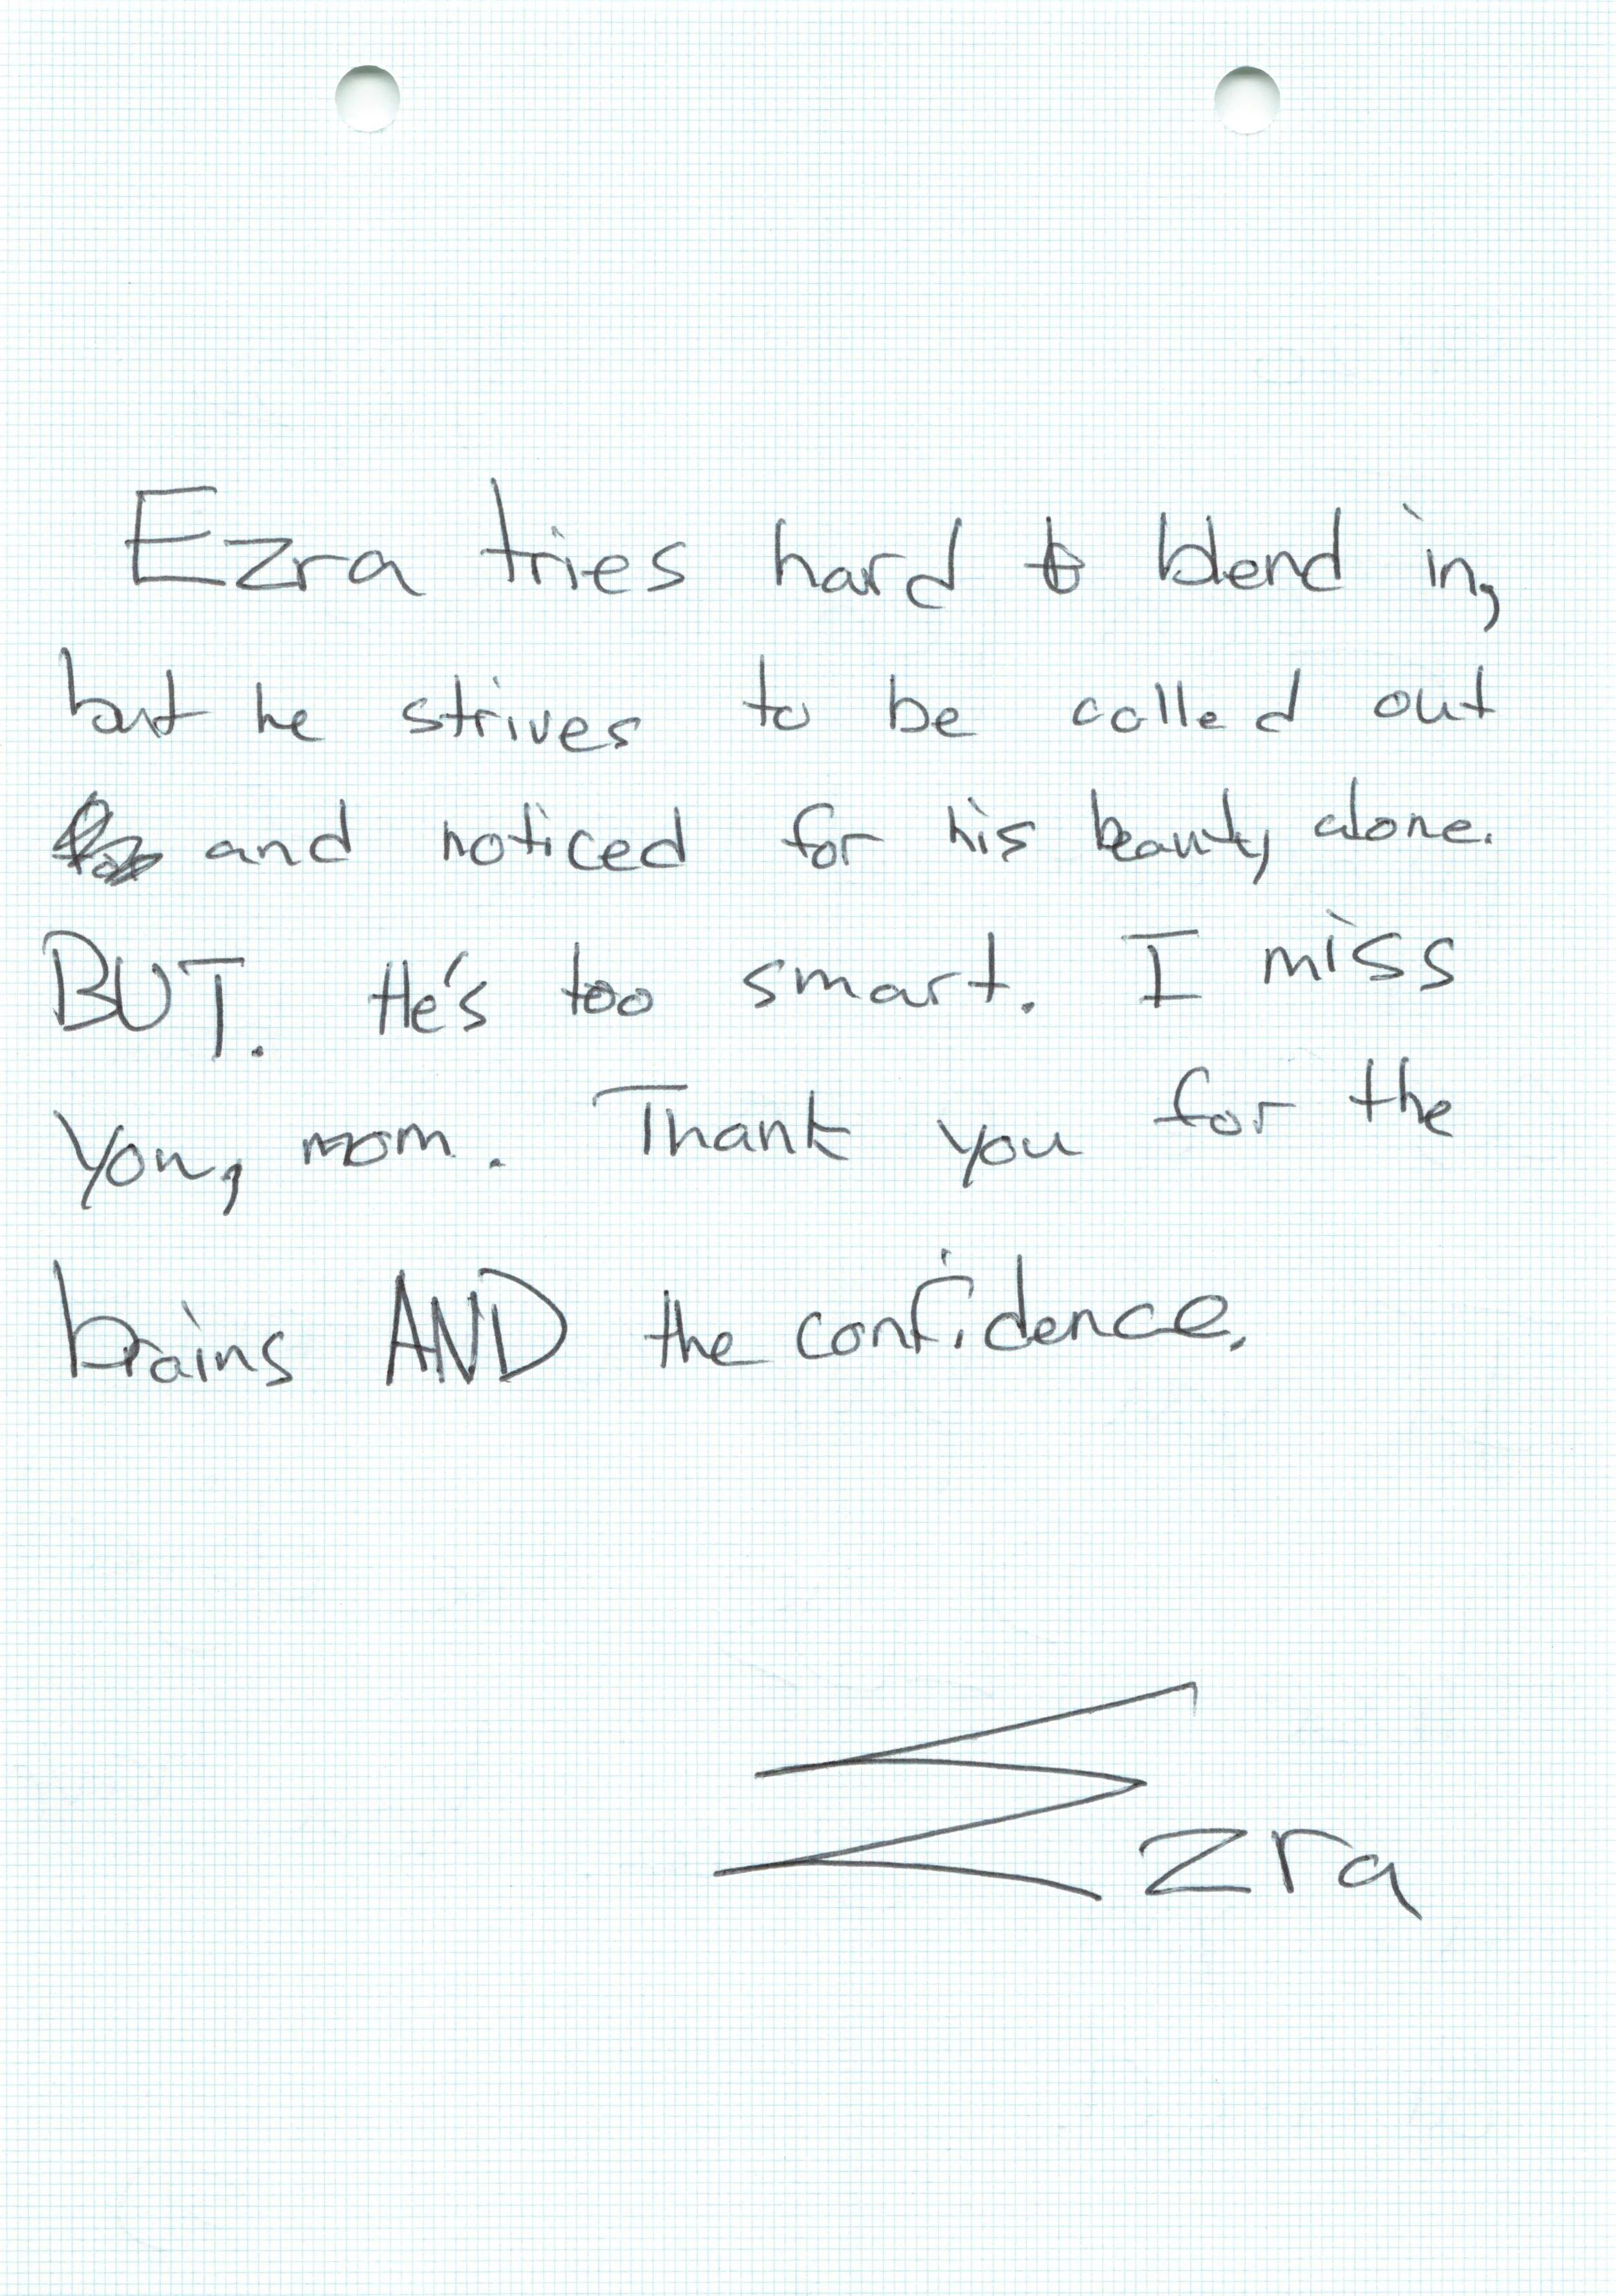 Ezra tries hard to blend in,
but he strives to be called out
and noticed for his beauty alone.
BUT. He's too smart. I miss
you, mom. Thank you for the
brains AND the confidence.
Ezra